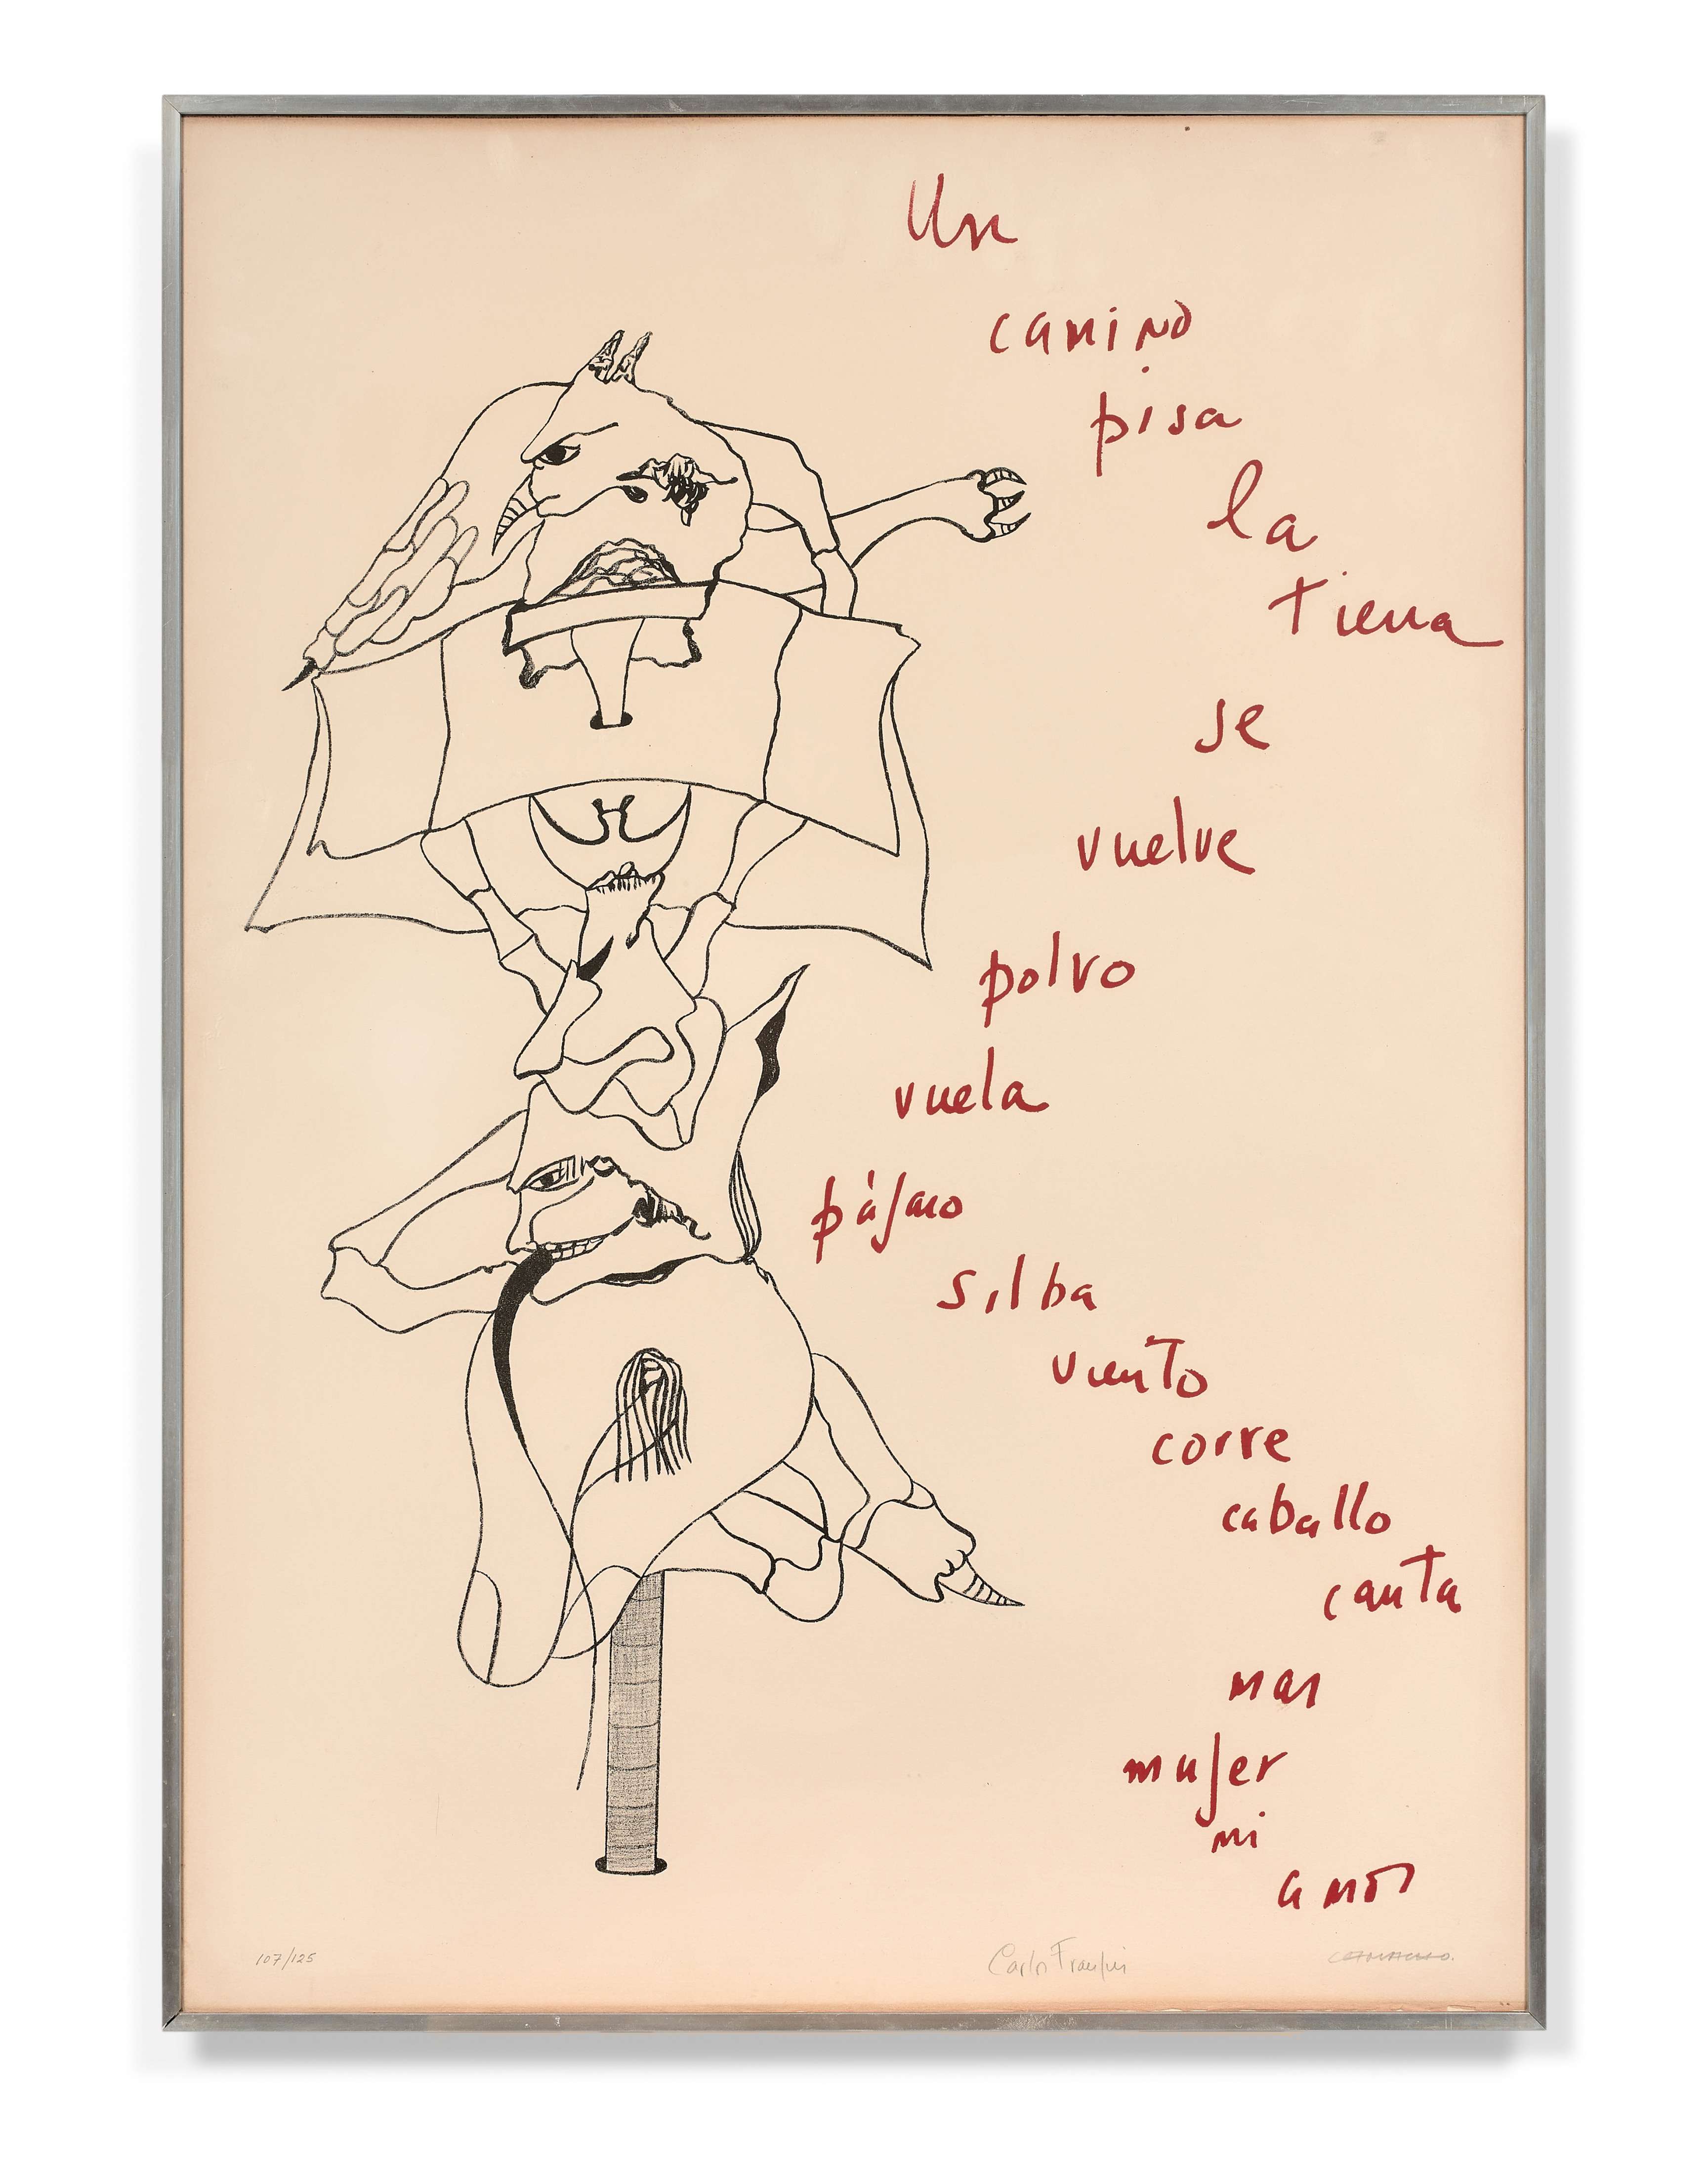 Un
camino
pisa
la
tierra
se
vuelve
polvo
vuela
pájaro
silba
viento
corre
caballo
canta
mar
mujer
mi
amor
107/125 Carlos Franqui